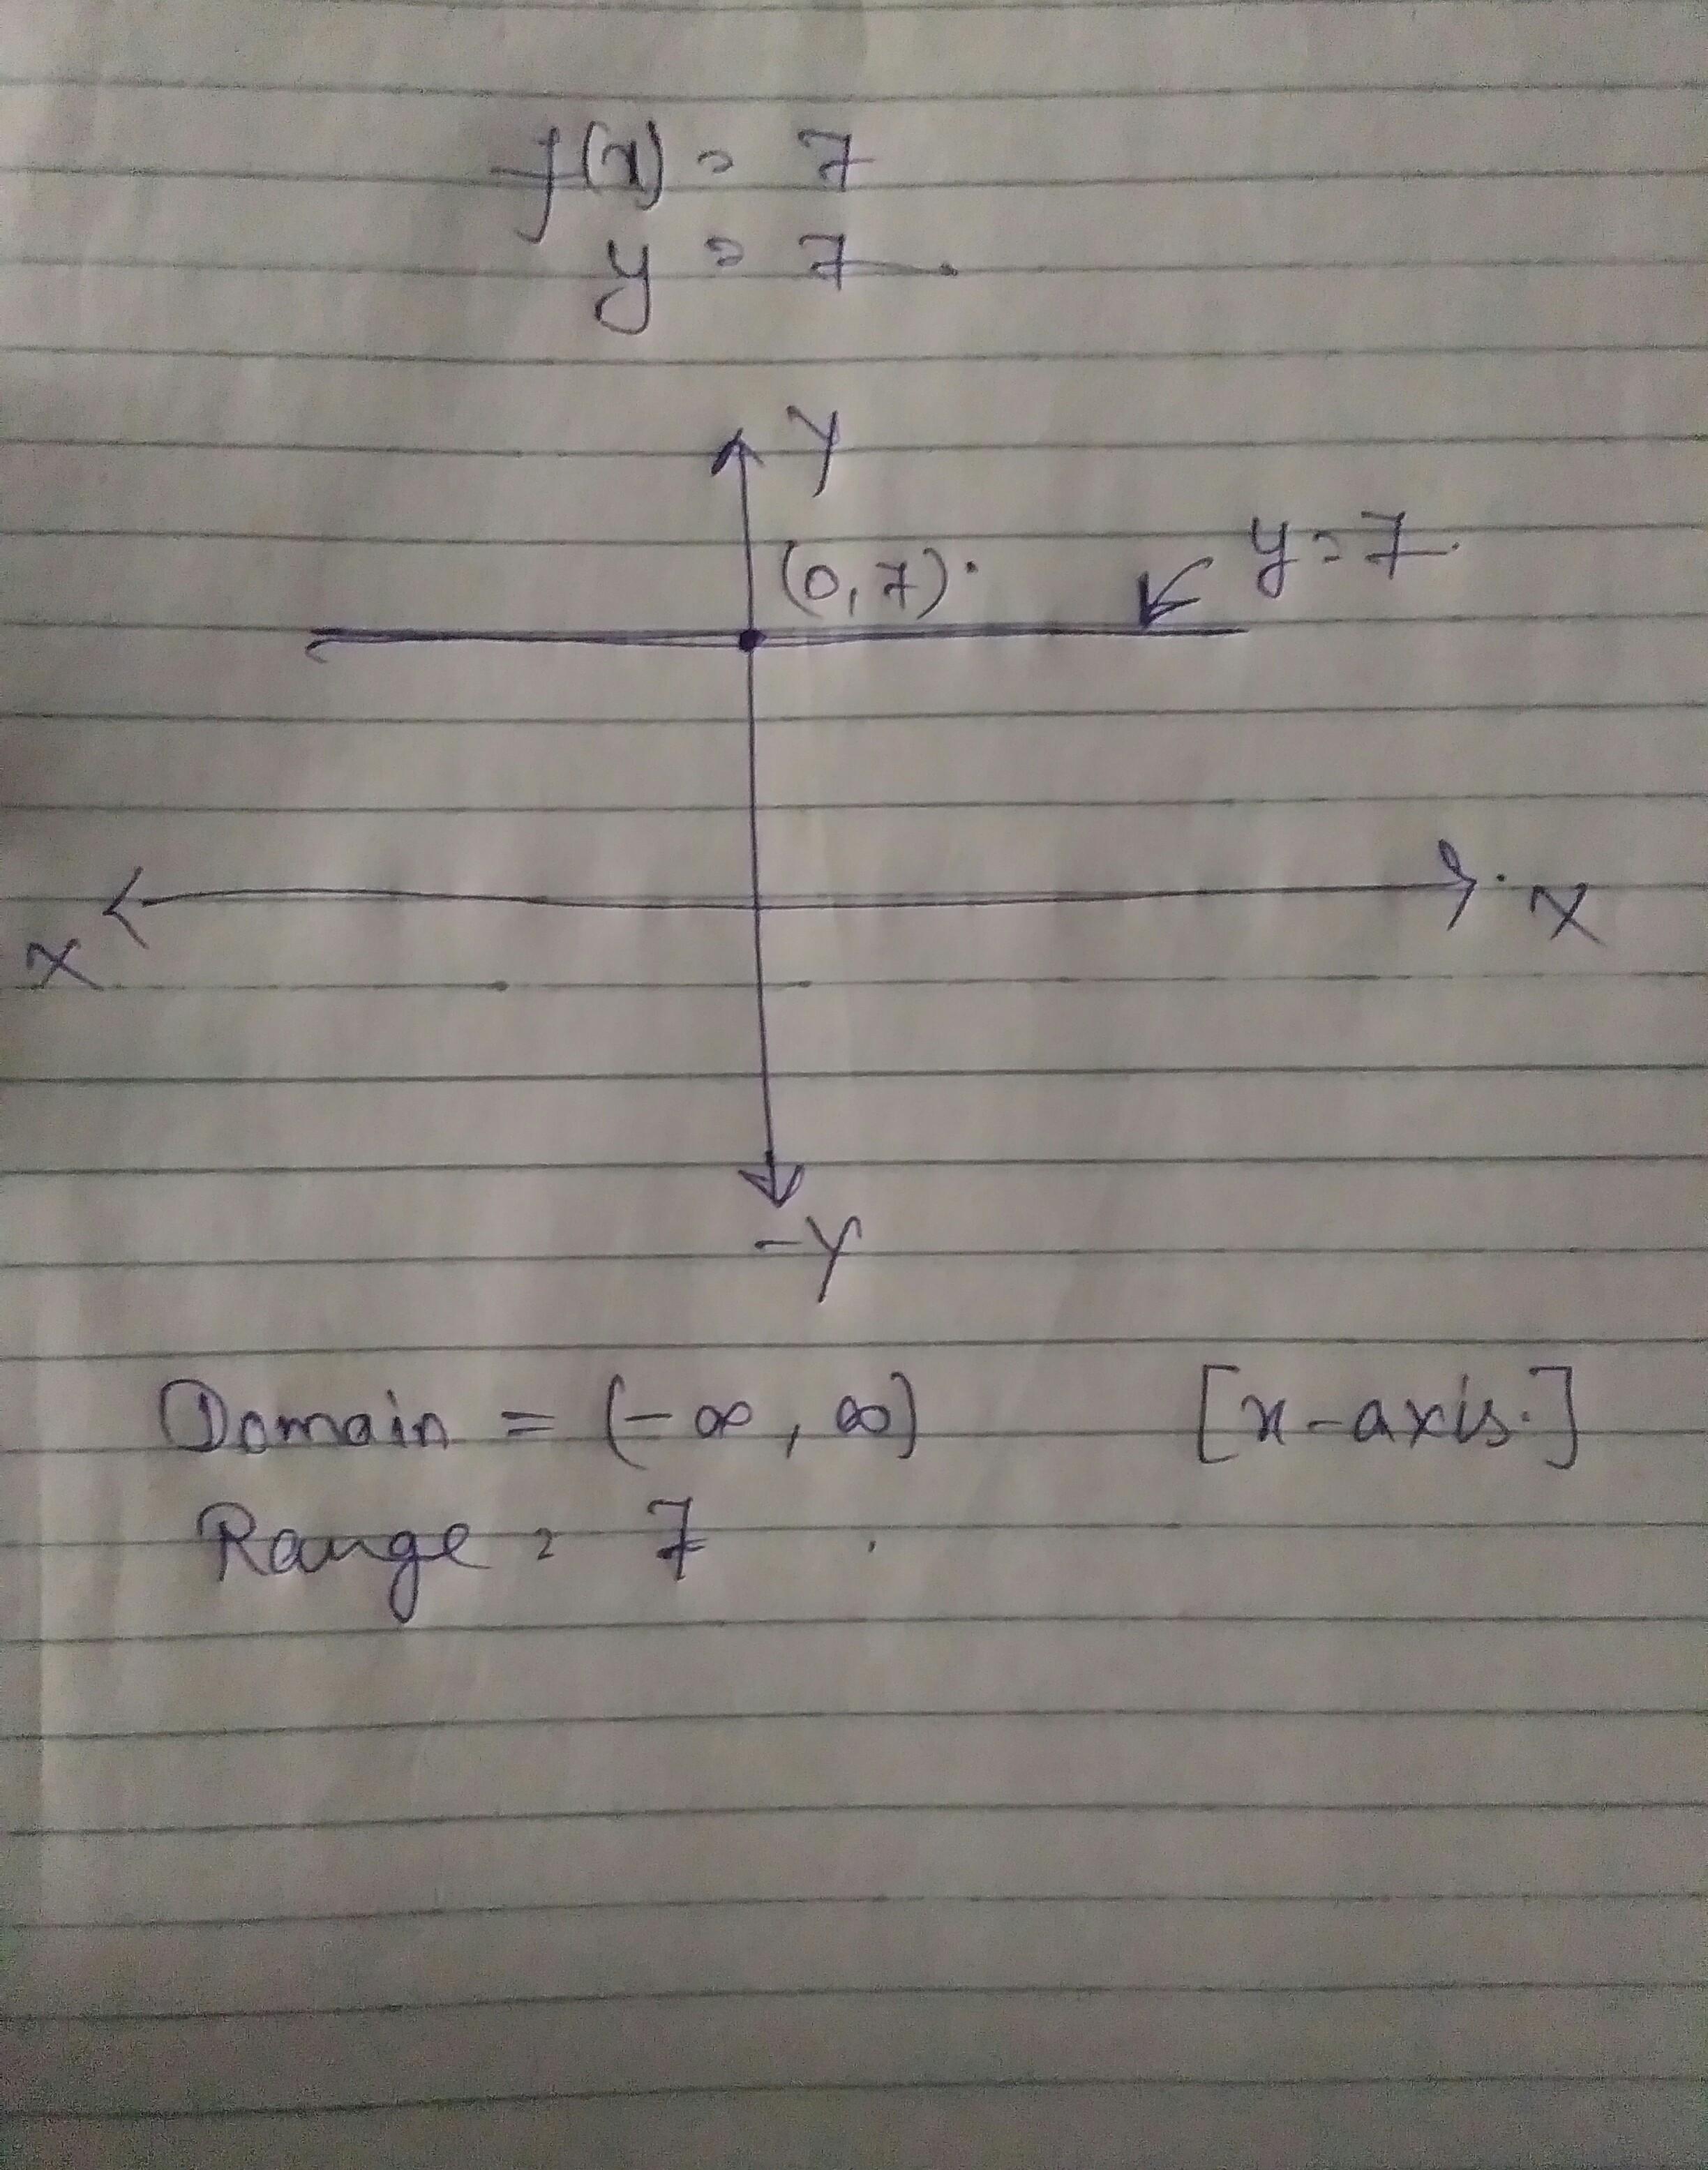 f(x) = 7
y = 7
Y
(0,7)
y=7
X
X
-Y
Domain = (-∞, ∞) [x-axis.]
Range = 7